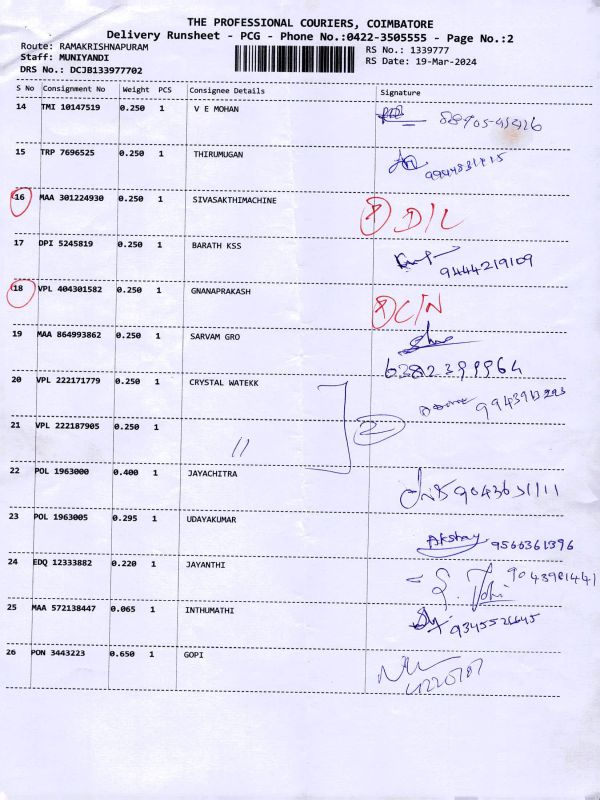 THE PROFESSIONAL COURIERS, COIMBATORE
Delivery Runsheet - PCG - Phone No.:0422-3505555 - Page No.:2
Route: RAMAKRISHNAPURAM RS No.: 1339777
Staff: MUNIYANDI RS Date: 19-Mar-2024
DRS No.: DCJB133977702
S No Consignment No Weight PCS Consignee Details Signature
14 TMI 10147519 0.250 1 V E MOHAN
15 TRP 7696525 0.250 1 THIRUMUGAN
16 MAA 301224930 0.250 1 SIVASAKTHIMACHINE D/L
17 DPI 5245819 0.250 1 BARATH KSS 9444219109
18 VPL 404301582 0.250 1 GNANAPRAKASH C/N
19 MAA 864993862 0.250 1 SARVAM GRO
6382399964
20 VPL 222171779 0.250 1 CRYSTAL WATEKK
21 VPL 222187905 0.250 1 〃 2
22 POL 1963000 0.400 1 JAYACHITRA 9043631111
23 POL 1963005 0.295 1 UDAYAKUMAR Akshay 9566361396
24 EDQ 12333882 0.220 1 JAYANTHI 9043981441
25 MAA 572138447 0.065 1 INTHUMATHI
26 PON 3443223 0.650 1 GOPI